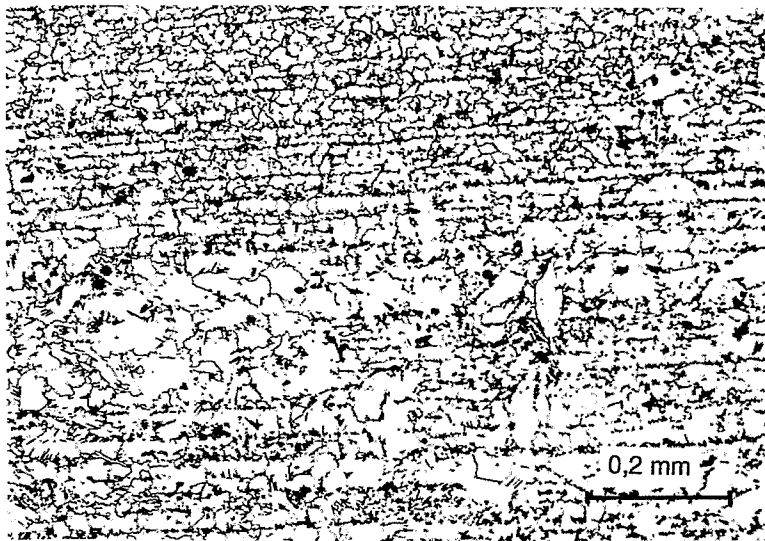 0,2 mm